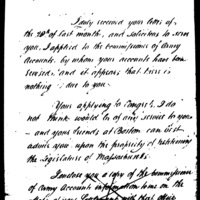 I duly received your letter of
the 20th of last month, and solicitous to serve
you, I applied to the commissioner of Army
Accounts, by whom your accounts have been
revised, and it appears that there is
nothing due to you.
Your applying to Congress, I do
not think would be of any service to you
and your friends at Boston can best
advise you upon the propriety of petitioning
the Legislature of Massachusetts.
I enclose you a copy of the commissioner
of Army Accounts information to me on the